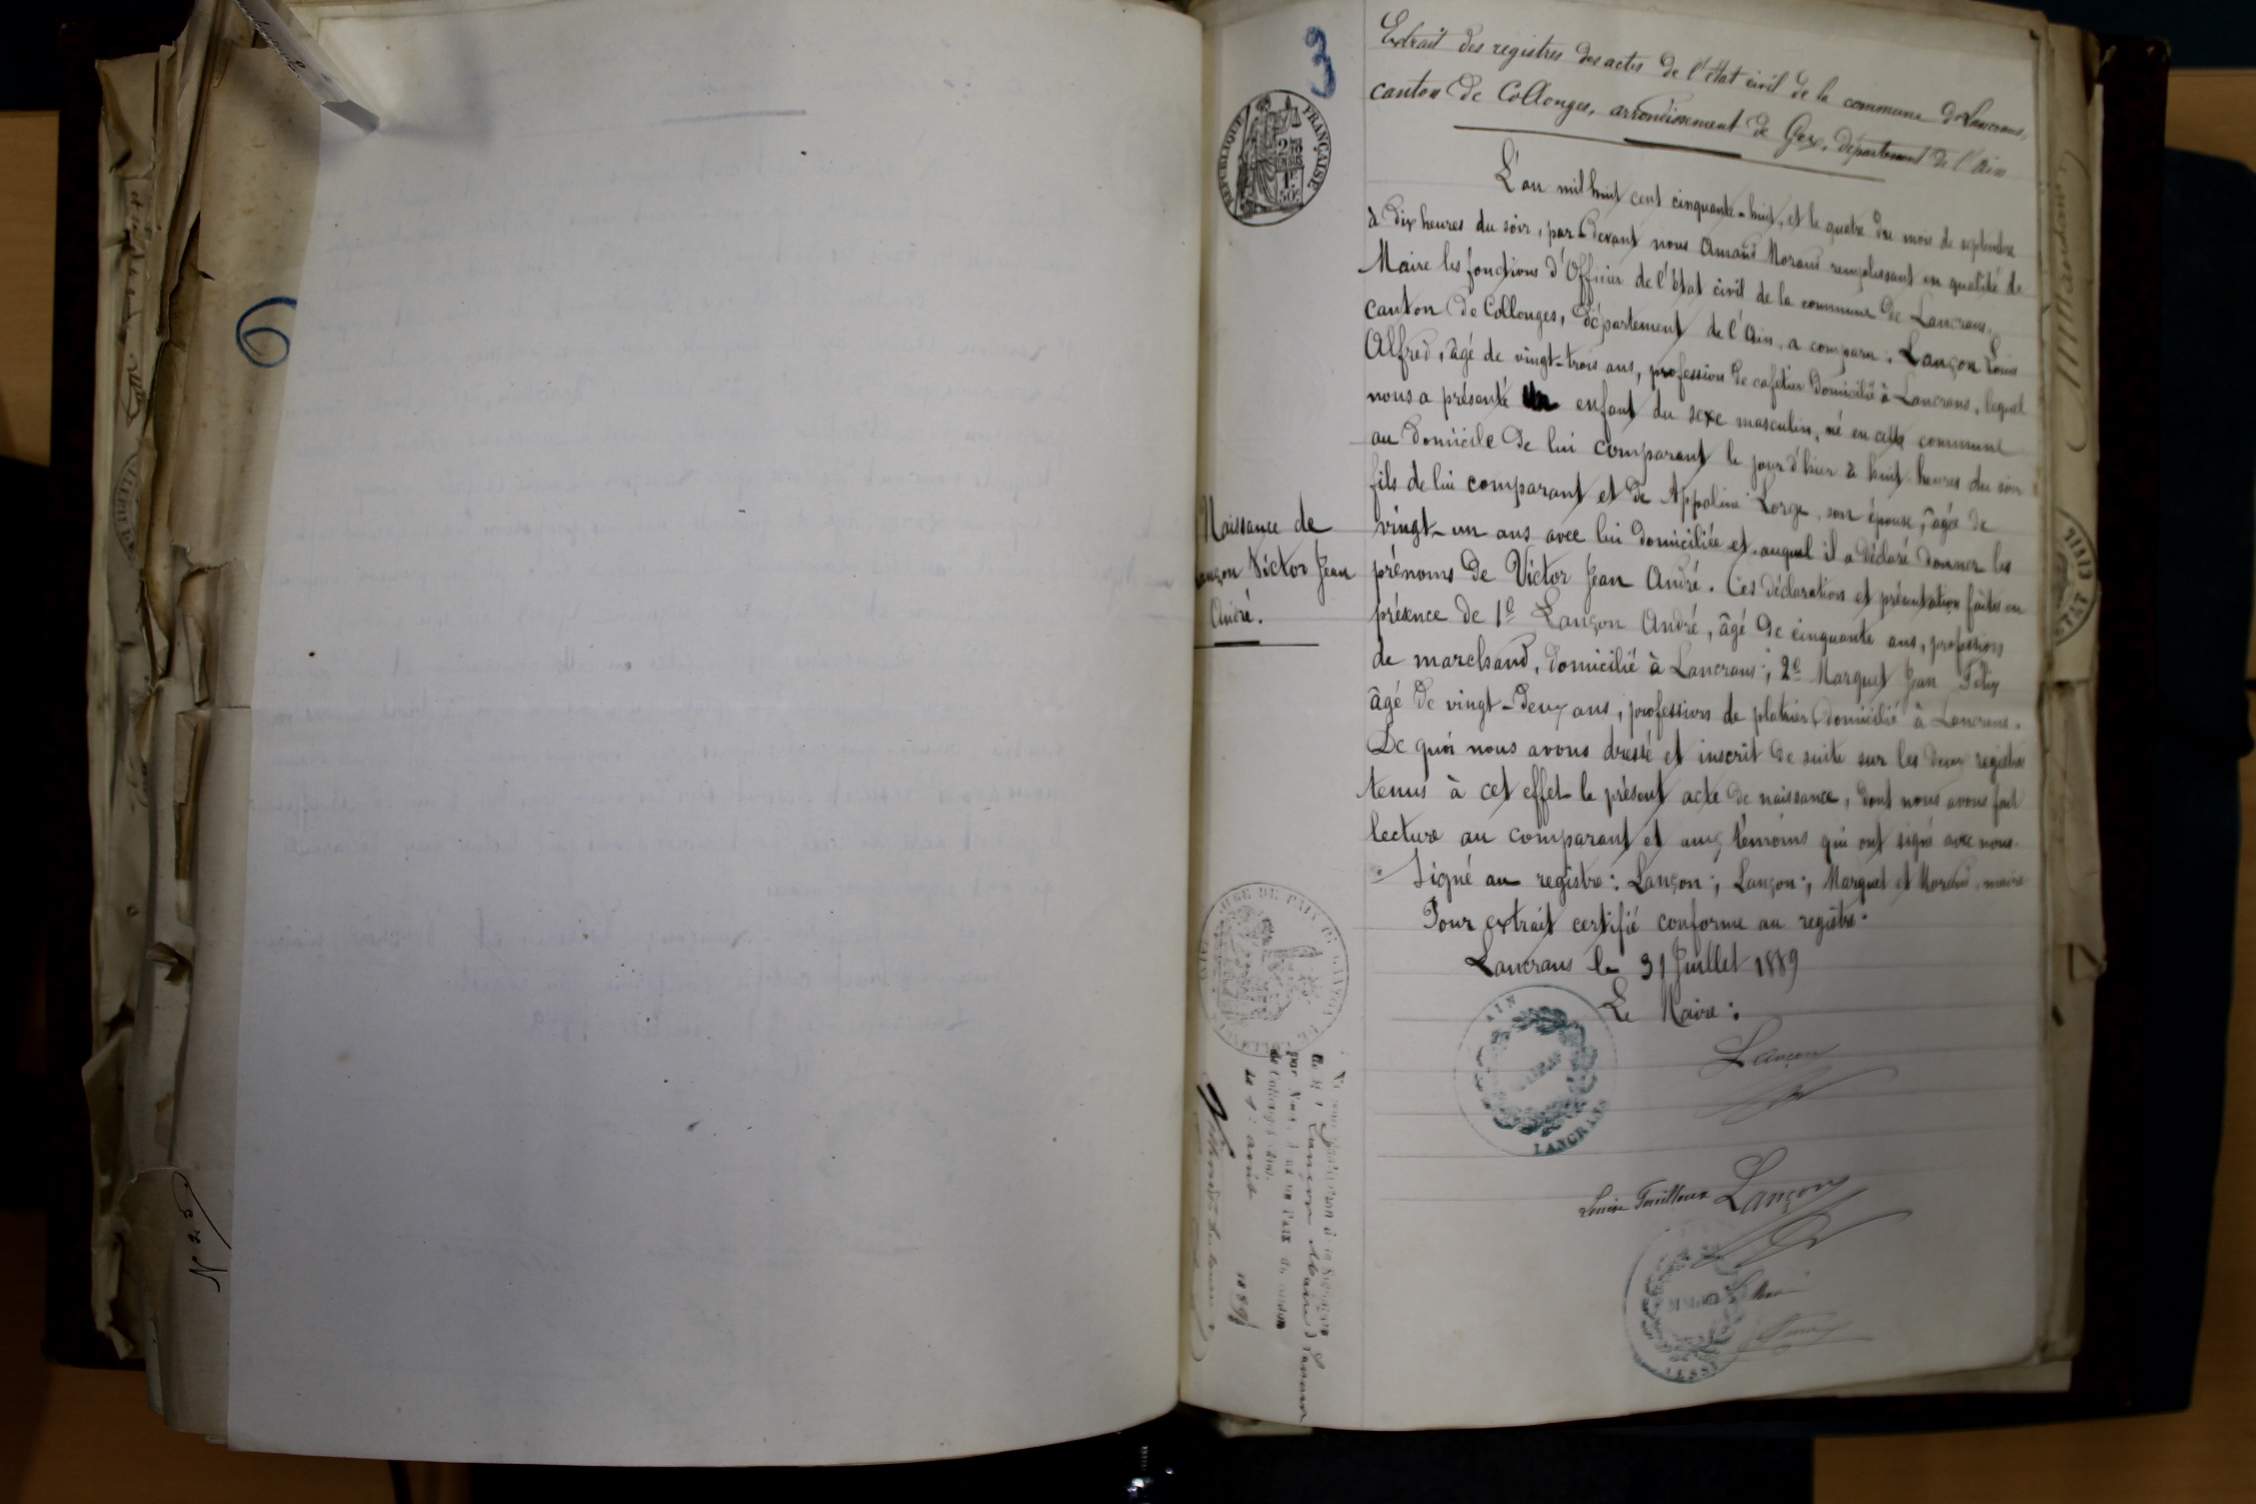 3
Extrait des registres des actes de l'état civil de la commune de Lancrans,
canton de Collonges, arrondissement de Gex, département de l'Ain
RÉPUBLIQUE FRANÇAISE
L'an mil huit cent cinquante-huit, et le quatre du mois de septembre
à dix heures du soir, par-devant nous Amand Morand remplissant en qualité de
Maire les fonctions d'Officier de l'état civil de la commune de Lancrans,
canton de Collonges, département de l'Ain, a comparu : Lançon Louis
Alfred, âgé de vingt-trois ans, profession de cafetier domicilié à Lancrans, lequel
nous a présenté un enfant du sexe masculin, né en cette commune
au domicile de lui comparant le jour d'hier à huit heures du soir
fils de lui comparant et de Appoline Lorge, son épouse, âgée de
vingt-un ans avec lui domiciliée et auquel il a déclaré donner les
prénoms de Victor Jean André. Ces déclaration et présentation faites en
présence de 1º Lançon André, âgé de cinquante ans, profession
de marchand, domicilié à Lancrans ; 2º Marquet Jean Félix
âgé de vingt-deux ans, profession de platrier, domicilié à Lancrans.
De quoi nous avons dressé et inscrit de suite sur les deux registres
tenus à cet effet le présent acte de naissance, dont nous avons fait
lecture au comparant et aux témoins qui ont signé avec nous.
Signé au registre : Lançon ; Lançon ; Marquet et Morand, maire
Pour extrait certifié conforme au registre.
Lancrans le 31 Juillet 1889
Le Maire :
Lançon
Naissance de
Lançon Victor Jean
André.
AIN
MAIRIE
LANCRANS
Lançon
JUGE DE PAIX
de Collonges (Ain)
1889
6
N 20